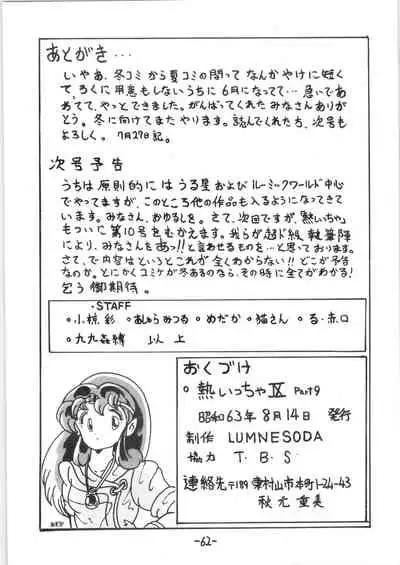 あとがき・・・
いやあ、冬コミから夏コミの間って なんかやけに短く
て、ろくに用意もしないうちに 6月になってて… 急いであ
わてて、やっとできました。がんばってくれた みなさんありが
とう。冬に向けてまた やります。読んでくれた方、次号も
よろしく。 7月27日記。
次号予告
うちは 原則的には うる星 および ルーミックワールド中心
でやってますが、このところ他の作品も入るようになってきて
います。みなさん、おゆるしを。 さて、次回ですが、「熱いっちゃ」
もついに 第10号 をむかえます。我らが超ド級、執筆陣
により、みなさんを あっ!! と言わせるものを…と思っております。
さて、で 内容は というと これが 全くわからない!! どこが予告
なのか。とにかくコミケが冬あるのなら、その時に全てがわかる!
乞う御期待。
・STAFF
・小椋 彩 ・あしゅらみつる ・めだか ・猫さん ・る・赤口
・九九 以上
おくづけ
熱いっちゃ IX Part9
昭和63年8月14日 発行
制作 LUMNESODA
協力 T.B.S
連絡先 〒189 東村山市本町1-24-43
秋元重美
-62-